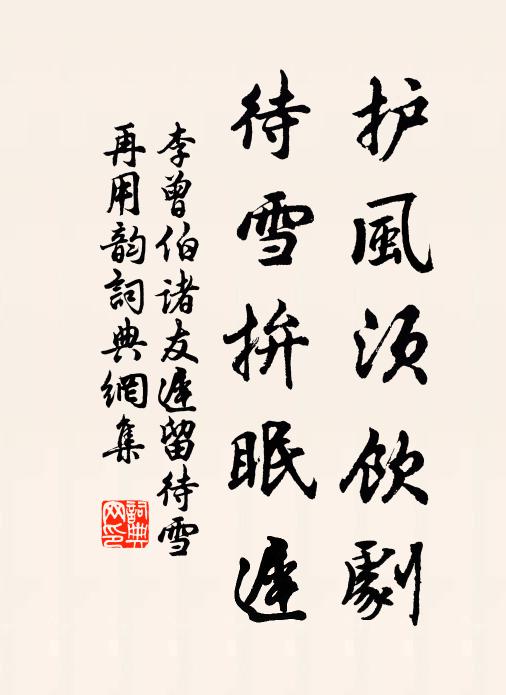 护風须飲劇
待雪拚眠遲
李曾伯诸友遲留待雪
再用韵詞典網集
詞典
网印